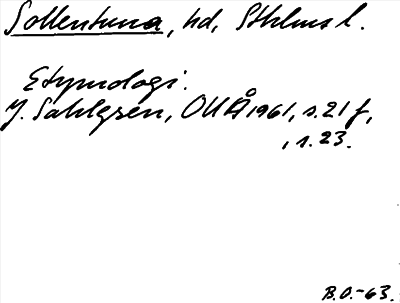 Sollentuna, hd, Sthlms l.
Etymologi.
J. Sahlgren, OUÅ 1961, s. 21 f,
, s. 23.
B.O.-63.